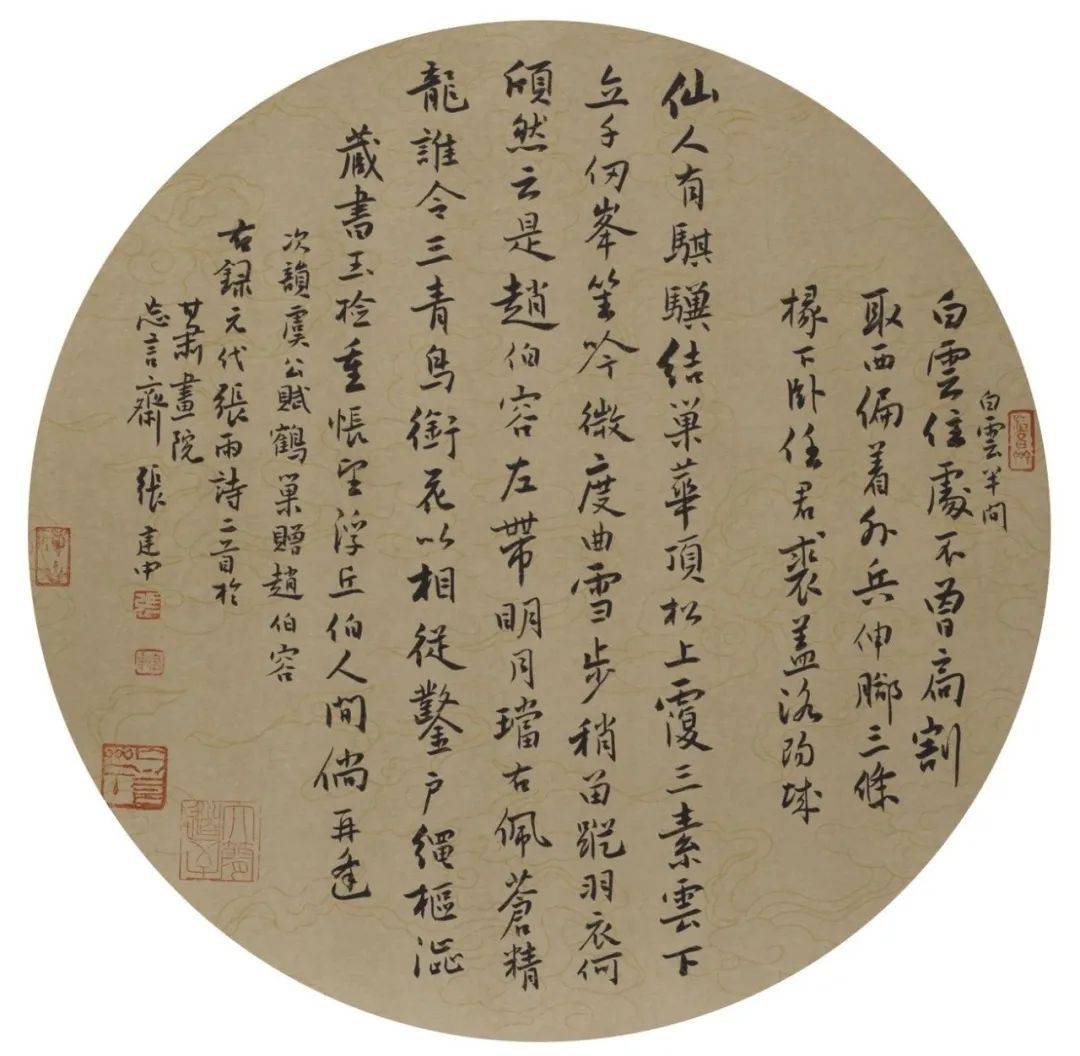 白雲半間
白雲住處不曾高割
取西偏着外兵伸腳三條
椽下卧任君裘蓋洛陽城
仙人有騏驥結巢華頂松上覆三素雲下
立千仞峯笙吟微度曲雪步稍留蹤羽衣何
頎然云是趙伯容左帶明月璫右佩蒼精
龍誰令三青鳥銜花以相從鑿戶繩樞澁
藏書玉檢重悵望浮丘伯人間倘再逢
次韻虞公賦鶴巢贈趙伯容
右録元代張雨詩二首於
甘肅畫院
忘言齋 張建中